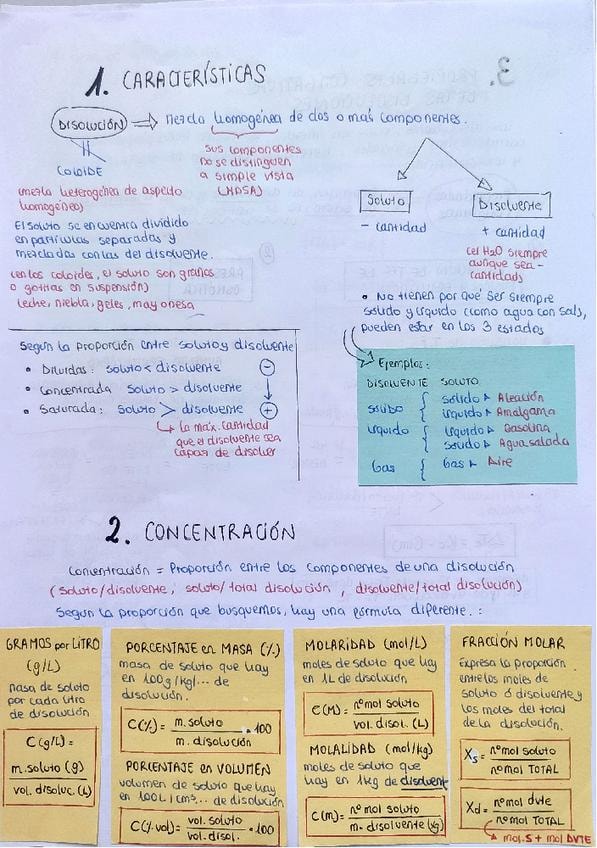 1. CARACTERÍSTICAS
DISOLUCIÓN ⇒ mezcla homogénea de dos o más componentes.
sus componentes
no se distinguen
a simple vista
(MASA)
COLOIDE
(mezla heterogénea de aspecto
homogéneo)
El soluto se encuentra dividido
en partículas separadas y
mezcladas con las del disolvente.
(en los coloides, el soluto son granos
o gotitas en suspensión)
leche, niebla, geles, mayonesa
Soluto
- cantidad
Disolvente
+ cantidad
(el H2O siempre
aunque sea -
cantidad)
• No tienen por qué ser siempre
sólido y líquido (como agua con sal),
pueden estar en los 3 estados
Según la proporción entre soluto y disolvente
• Diluidas: soluto < disolvente -
• Concentrada soluto > disolvente
• Saturada: soluto > disolvente +
la máx. cantidad
que el disolvente sea
capaz de disolver
Ejemplos:
DISOLVENTE SOLUTO
sólido { sólido → Aleación
líquido → Amalgama
líquido { líquido → Gasolina
sólido → Agua salada
Gas { Gas → Aire
2. CONCENTRACIÓN
Concentración = Proporción entre los componentes de una disolución
(soluto/disolvente, soluto/total disolución, disolvente/total disolución)
Según la proporción que busquemos, hay una fórmula diferente.:
GRAMOS por LITRO
(g/L)
masa de soluto
por cada litro
de disolución
C(g/L) =
m. soluto (g)
vol. disoluc. (L)
PORCENTAJE en MASA (%)
masa de soluto que hay
en 100g/kg/... de
disolución.
C(%) = m. soluto / m. disolución · 100
PORCENTAJE en VOLUMEN
volumen de soluto que hay
en 100L/cm³... de disolución
C(% vol) = vol. soluto / vol. disol. · 100
MOLARIDAD (mol/L)
moles de soluto que hay
en 1L de disolución
C(M) = nº mol soluto / vol. disol. (L)
MOLALIDAD (mol/kg)
moles de soluto que
hay en 1kg de disolvent
C(m) = nº mol soluto / m. disolvente (kg)
FRACCIÓN MOLAR
Expresa la proporción
entre los moles de
soluto ó disolvente y
los moles del total
de la disolución.
Xs = nº mol soluto / nº mol TOTAL
Xd = nº mol dvte / nº mol TOTAL
mol. S + mol DVTE